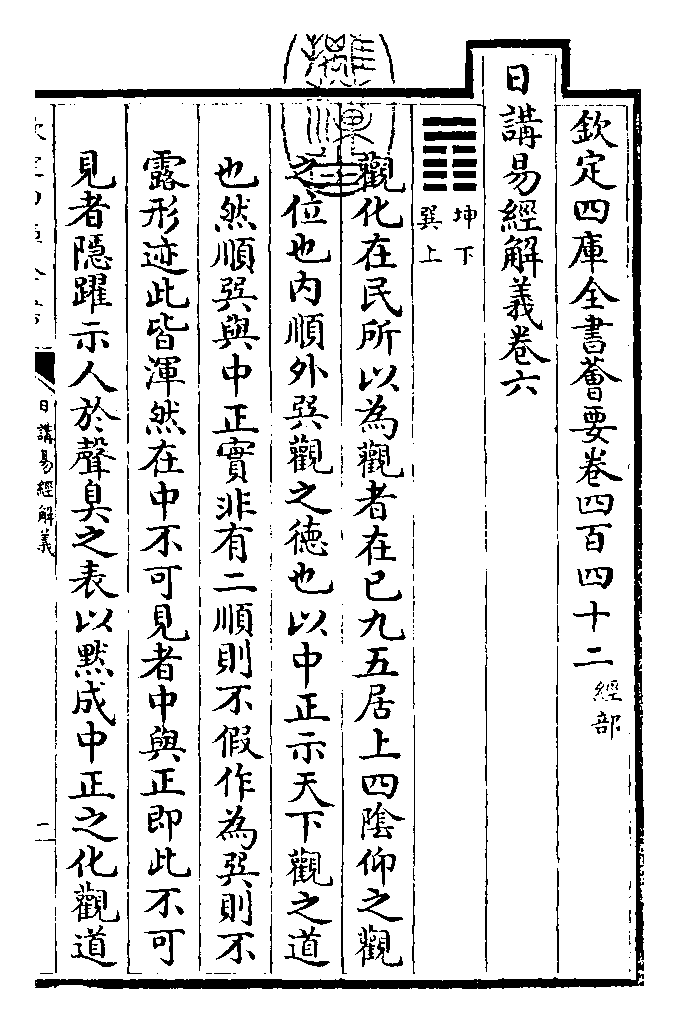 欽定四庫全書薈要卷四百四十二經部
日講易經解義卷六
坤下
巽上
觀化在民所以為觀者在已九五居上四陰仰之觀
之位也内順外巽觀之徳也以中正示天下觀之道
也然順巽與中正實非有二順則不假作為巽則不
露形迹此皆渾然在中不可見者中與正即此不可
見者隠躍示人於聲臭之表以黙成中正之化觀道
日講易經解義